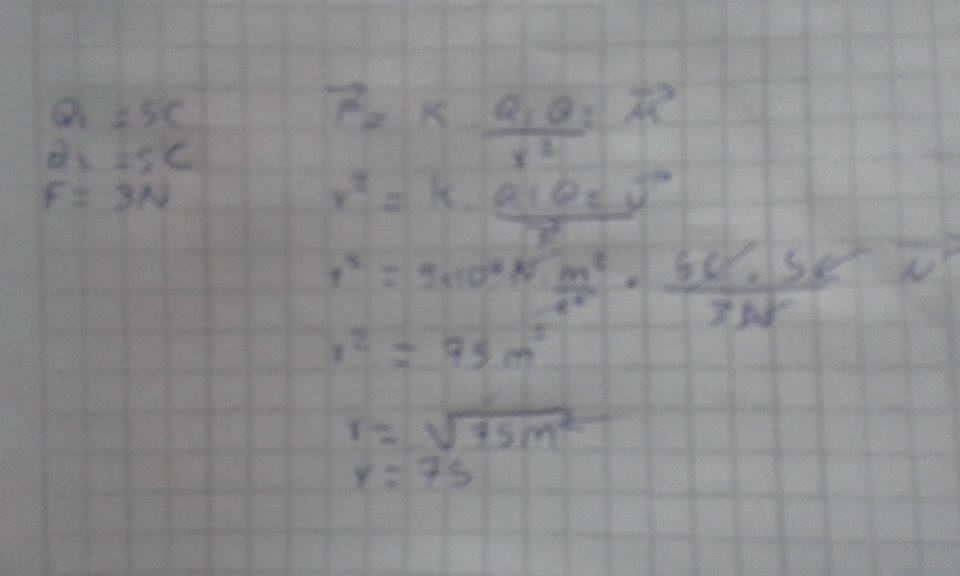 Q₁ = 5C
Q₂ = 5C
F = 3N
F⃗ = K . Q₁Q₂ / r² μ⃗
r² = K . Q₁Q₂ / F⃗ u⃗
r² = 9x10⁹ N . m² / c² . 5C . 5C / 3N
r² = 75 m²
r = √75m²
r = 75